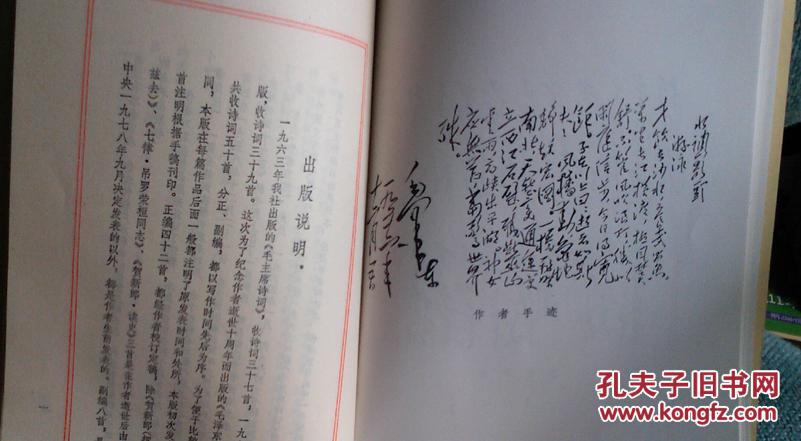 水调歌头
游泳
才饮长沙水又食武昌鱼
万里长江横渡极目楚天
舒不管风吹浪打胜似
闲庭信步今日得宽
子在川上曰逝者如斯
夫 风樯动龟蛇
静起宏图一桥飞
南北天堑变通途更
立西江石壁截断巫山
云雨高峡出平湖神女
应无恙当惊世界
殊
毛泽东
一九五六年
十二月五日
作者手迹
出版说明
一九六三年我社出版的《毛主席诗词》，收诗词三十七首，一九
版，收诗词三十九首。这次为了纪念作者逝世十周年而出版的《毛泽东
共收诗词五十首，分正、副编，都以写作时间先后为序。为了便于比较
同，本版在每篇作品后面一般都注明了原发表时间和处所，本版初次发
首注明根据手稿刊印。正编四十二首，都经作者校订定稿，除《贺新郎·挥
兹去》、《七律·吊罗荣桓同志》、《贺新郎·读史》三首是在作者逝世后由
中央一九七八年九月决定发表的以外，都是作者生前发表的。副编八首，
一
孔夫子旧书网
www.kongfz.com